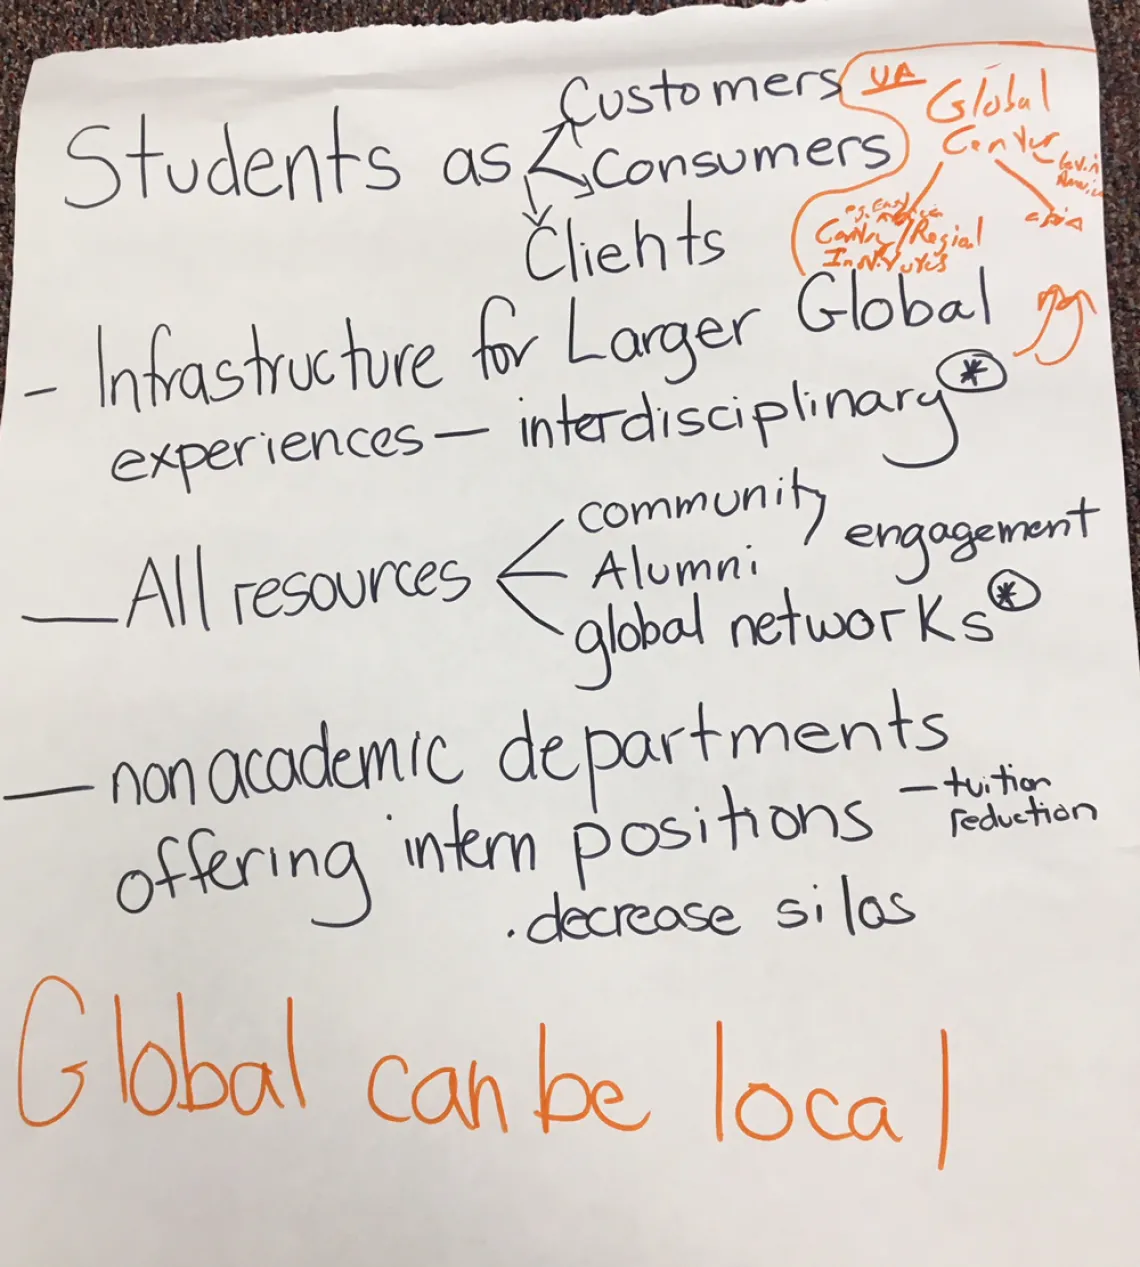 Students as
Customers
Consumers
Clients
UA
Global
Center
Latin
America
asia
Country/Regional
Institutes
- Infrastructure for Larger Global
experiences — interdisciplinary *
— All resources
community
Alumni
engagement
global networks *
— nonacademic departments
offering intern positions
— tuition
reduction
. decrease silos
Global can be local